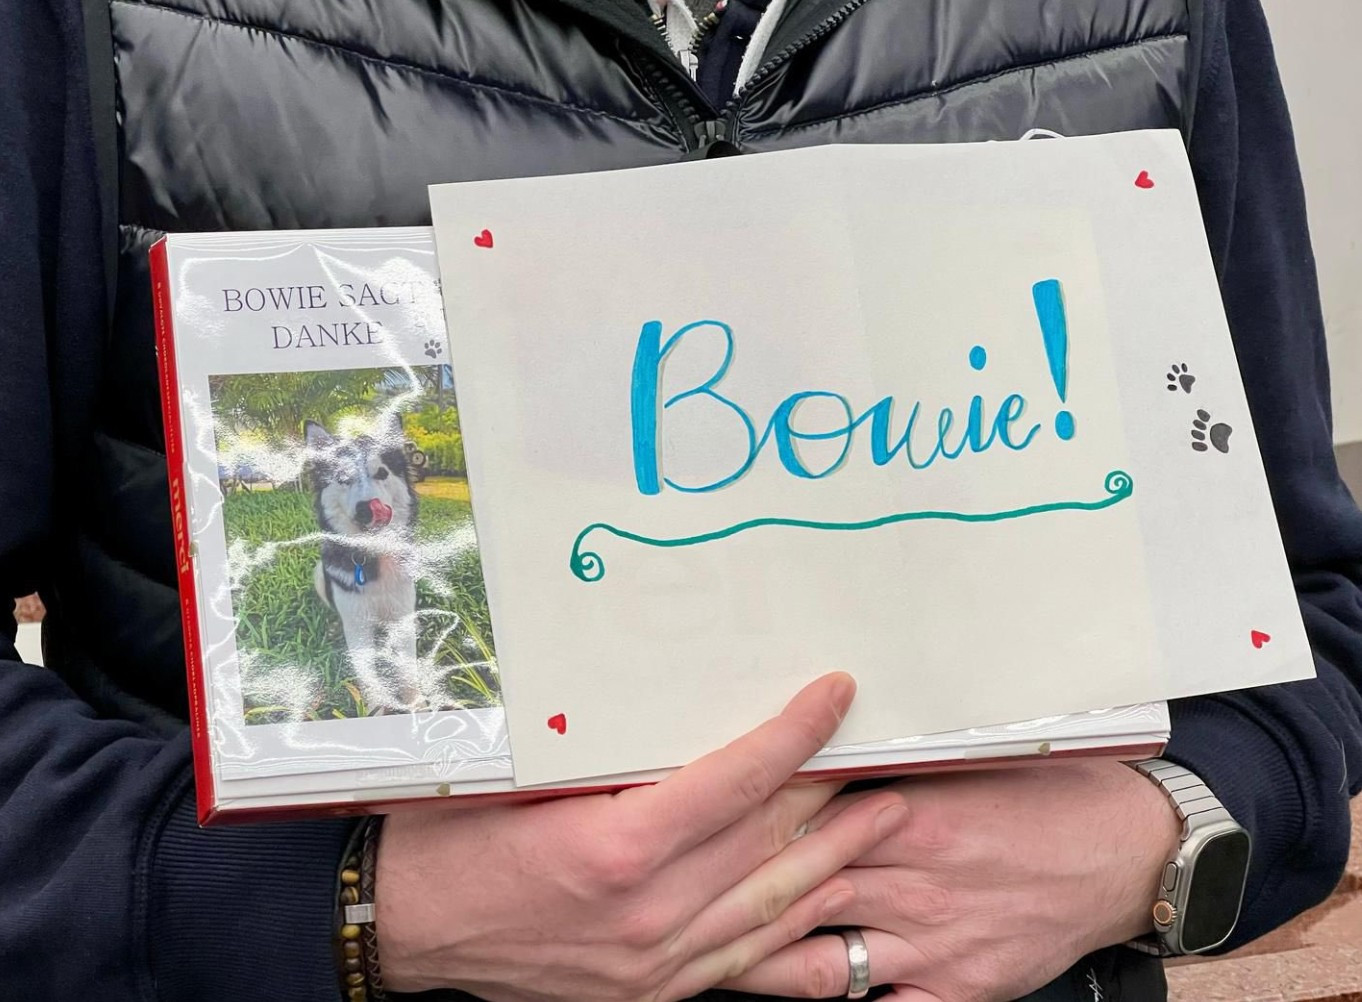 BOWIE SAGT
DANKE
merci
Bowie!